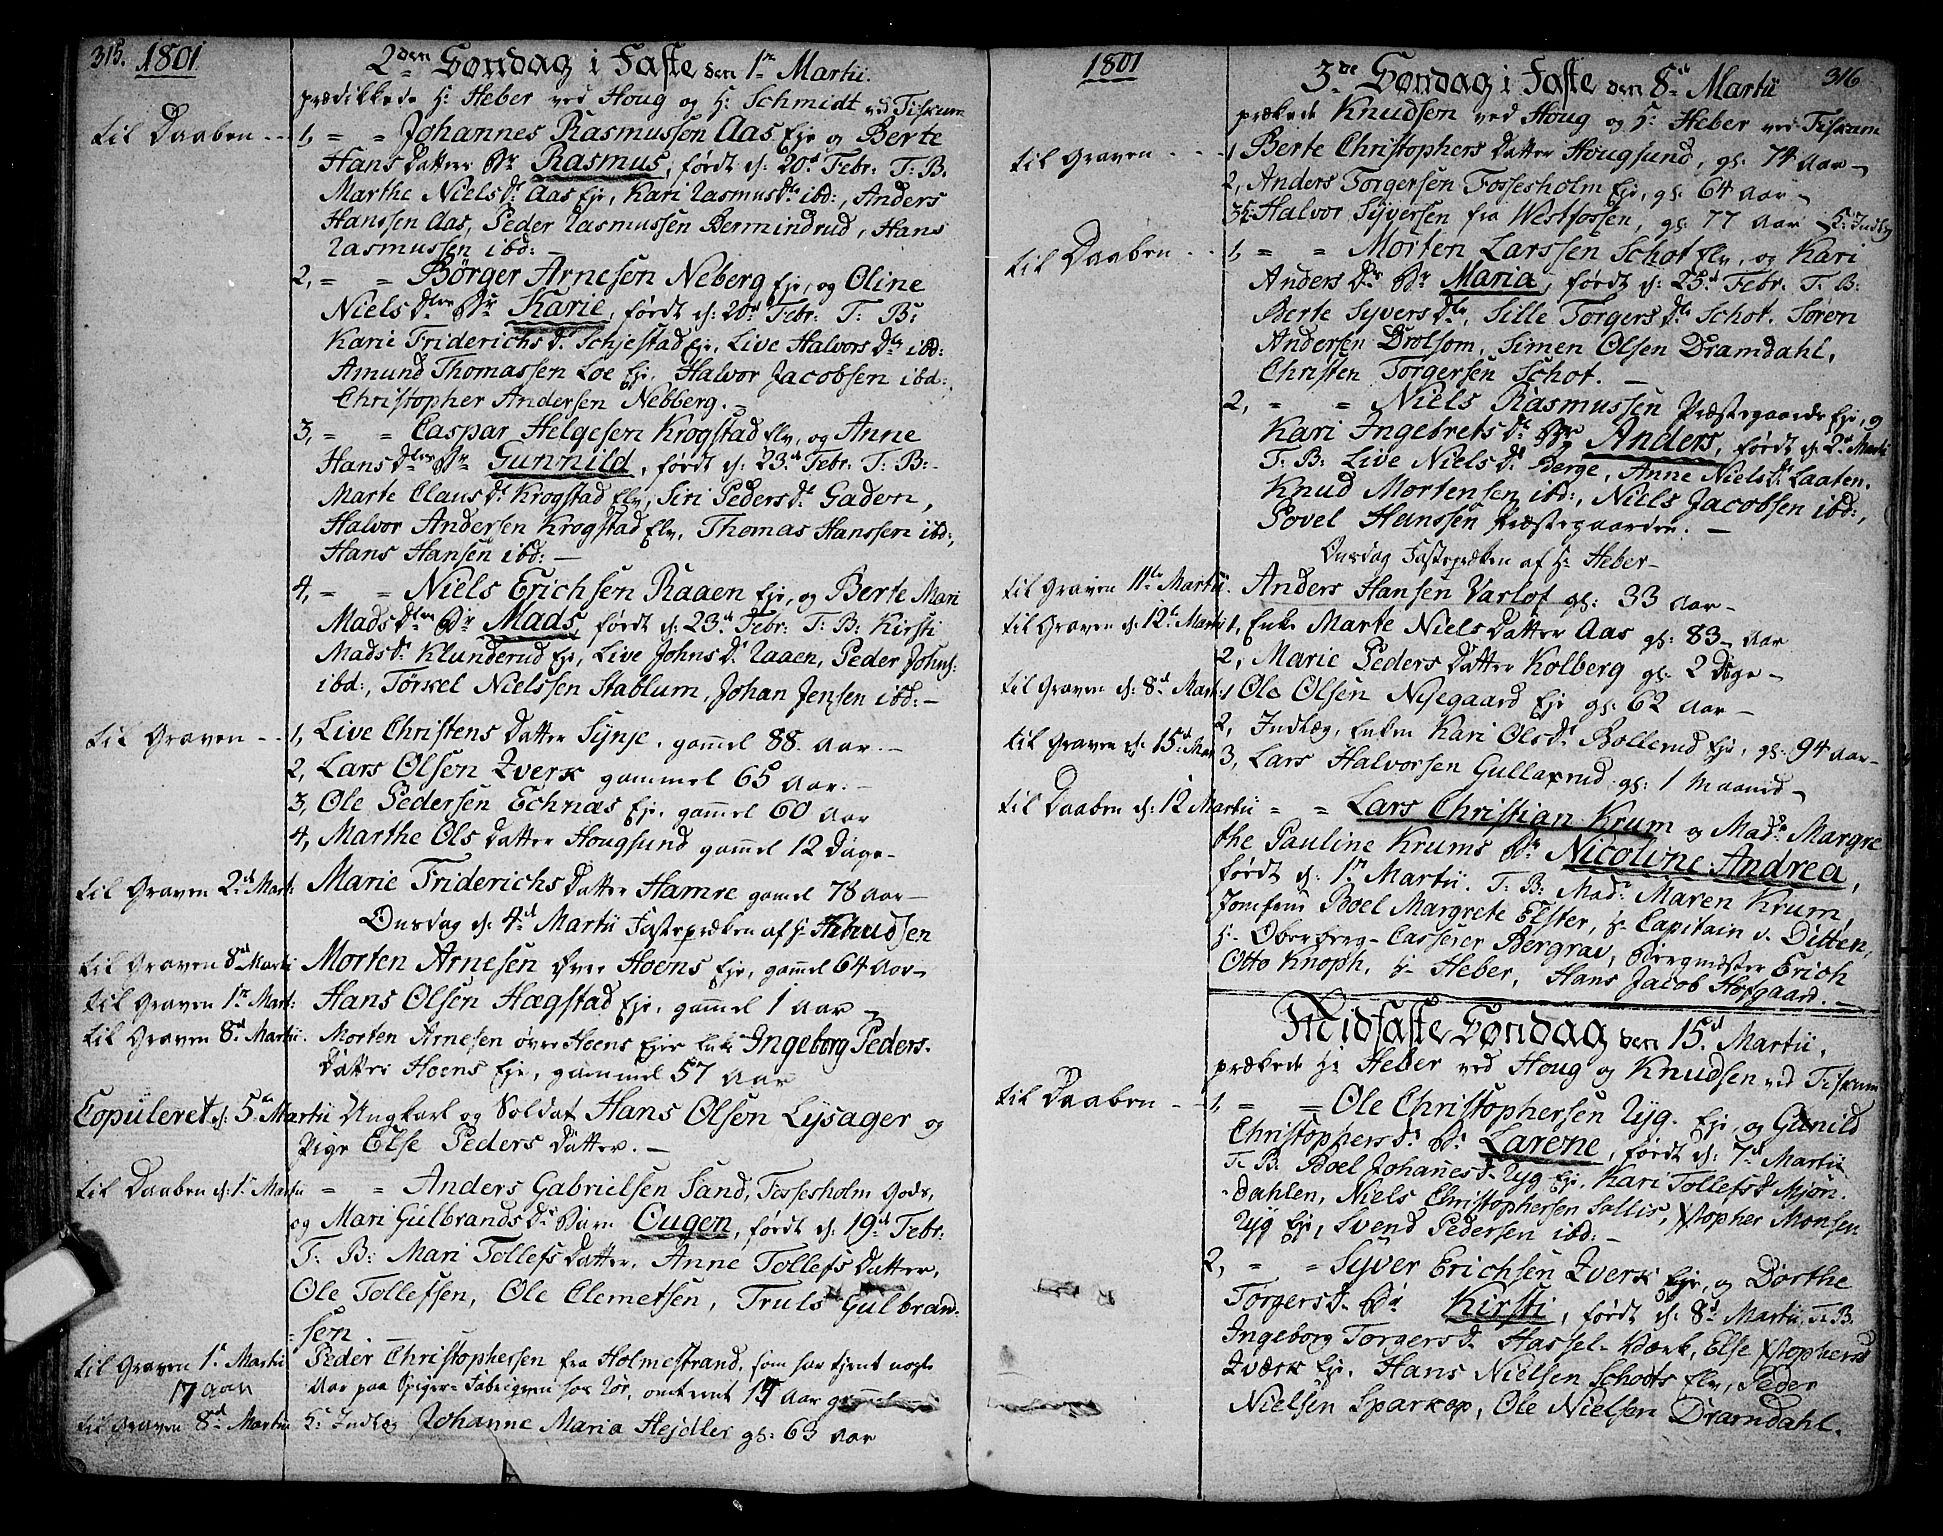 315. 1801
2den Søndag i Faste den 1te Martii.
prædikkede H: Heber ved Houg og H: Schmidt ved Fiskum
til Daaben -- 1, = = Johannes Rasmussøn Aas Eje og Berte
Hans Datter Br Rasmus, født d: 20d Febr: T: B:
Marthe Niels Dr Aas Eje, Kari Rasmus Dr ibd:, Anders
Hanssen Aas, Peder Rasmussen Bermindrud, Hans
Rasmussen ibd: -
2, = = Børger Arnesøn Neberg Eje, og Oline
Niels Dtrs Br Karie, født d: 20d Febr: T: B:
Karie Friderichs Dr Schjestad Eje, Live Halvors Dr ibd:
Amund Thomassen Loe Eje, Halvor Jacobsen ibd:,
Christopher Andersen Nebberg. -
3, = = Caspar Helgesen Krogstad Elv, og Anne
Hans Dtrs Br Gunnild, født d: 23d Febr: T: B:
Marte Claus Dr Krogstad Elv, Siri Peders Dr Gaden,
Halvor Andersen Krogstad Elv, Thomas Hanssen ibd:,
Hans Hansen ibd: -
4, = = Niels Erichsen Raaen Eje, og Berte Mari
Mads Dtrs Br Mads, født d: 23d Febr: T: B: Kirsti
Mads Dr Klunderud Eje, Live Johns Dr Raaen, Peder Johns:
ibd:, Tørkel Nielssen Stablum, Johan Jenssen ibd: -
til Graven -- 1, Live Christens Datter Synje, gammel 88 Aar. -
2, Lars Olsøn Zverk gammel 65 Aar. -
3, Ole Pedersen Echnæs Eje, gammel 60 Aar
4, Marthe Ols Datter Hougsund gammel 12 Dage -
til Graven 2d Mart: Marie Friderichs Datter Hamre gammel 78 Aar -
Onsdag d: 4d Martii Fasteprædken af Hr Knudsen
til Graven 8d Martii Morten Arnesen Øvre Hoens Eje, gammel 64 Aar -
til Graven 1te Mart: Hans Olsøn Hægstad Eje, gammel 1 Aar -
til Graven 8d Martii. Morten Arnesen øvre Hoens Ejes Enke Ingeborg Peders
Datter Hoens Eje, gammel 57 Aar
Copuleret d: 5te Martii Ungkarl og Soldat Hans Olsøn Lysager og
Pige Else Peders Datter. -
til Daaben d: 1te Martii = = Anders Gabrielsen Sand, Fossesholm Gods,
og Mari Gulbrands Dr Barn Eugen, født d: 19d Febr:
T: B: Mari Tollefs Datter, Anne Tollefs Datter,
Ole Tollefsen, Ole Clemetsen, Truls Gulbrand-
sen.
til Graven 1te Martii Peder Christophersen fra Holmestrand, som har tjent nogle
17 Aar Aar paa Spiger-Fabriquen
til Graven 8d Martii H: Indlæg Johanne Maria Hejdler gl: 63 Aar
1801
3de Søndag i Faste den 8d Martii 316
prækede Knudsen ved Houg og H: Heber ved Fiskum
til Graven --- 1 Berte Christophers Datter Hougsund, gl: 74 Aar -
2, Anders Torgersen Fossesholm Eje, gl: 64 Aar -
3, Halvor Syversen fra Westfossen, gl: 77 Aar H: Indlæg
til Daaben -- 1, = = Morten Larssen Schot Elv, og Kari
Anders Dr Br Maria, født d: 23d Febr: T: B:
Berte Syvers Dr, Sille Torgers Dr Schot. Søren
Andersen Drolsom, Simen Olsen Dramdahl,
Christen Torgersen Schot. -
2, = = Niels Rasmussen Præstegaards Eje, og
Kari Ingebrets Dr Br Anders, født d: 2d Martii
T: B: Live Niels Dr Berge, Anne Niels Dr Laaten.
Knud Mortensen ibd:, Niels Jacobsen ibd:,
Povel Hanssen Præstegaarden. -
Onsdag Fasteprædken af Hr Heber -
til Graven 11te Martii. Anders Hansen Varlof gl: 33 Aar -
til Graven d: 12te Martii 1, Enke Marte Niels Datter Aas gl: 83 Aar
2, Marie Peders Datter Kolberg gl: 2 Dage -
til Graven d: 8d Mart: 1 Ole Olsen Nysegaard Eje gl: 62 Aar -
2, Indlæg, Enken Kari Ols Dr Bollerud Eje, gl: 94 Aar -
til Graven d: 15d Mar 3, Lars Halvorsen Gullaxrud gl: 1 Maaned -
til Daaben d: 12 Martii = = Lars Christian Krum og Madm Margre
the Pauline Krums Br Nicoline Andrea,
født d: 1te Martii. T: B: Madm Maren Krum,
Jomfrue Boel Margrete Elster, Hr Capitain v. Ditten,
Hr Oberberg-Casserer Bergrav, Bergmester Erich
Otto Knoph, Hr Heber, Hans Jacob Hofgaard. -
Midfaste Søndag den 15d Martii,
prækede Hr Heber ved Houg og Knudsen ved Fiskum
til Daaben -- 1, = = Ole Christophersen Ryg Eje, og Gunild
Christophers Dr Br Larene, født d: 7d Martii
T: B: Boel Johanes Dr Ryg Eje, Kari Tollefs Dr Mjøn-
dahlen, Niels Christophersen Sallis, Xstopher Monsen
Ryg Eje, Svend Pedersen ibd: -
2, = = Syver Erichsen Zverk Eje, og Dorthe
Torgers Dr Br Kirsti, født d: 8d Martii, T: B:
Ingeborg Torgers Dr Hassel-Værk, Else Xstophers D
Zværk Eje, Hans Nielsen Schoots Elv, Peder
Nielsen Sparkop, Ole Nielsen Dramdahl.